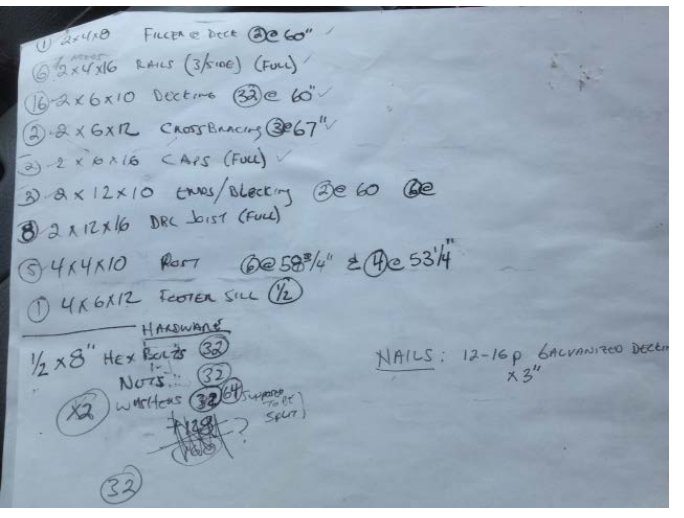 ① 2x4x8 FILLER @ DECK ② @ 60" ✓
⑥ 2x4x16 RAILS (3/SIDE) (FULL) ✓
⑯ 2x6x10 DECKING ㉜ @ 60" ✓
② 2x6x12 CROSSBRACING ③ @ 67" ✓
② 2x6x16 CAPS (FULL) ✓
③ 2x12x10 ENDS/BLOCKING ② @ 60 ⑥ @
⑧ 2x12x16 DBL JOIST (FULL)
⑤ 4x4x10 POST ⑥ @ 58 3/4" & ④ @ 53 1/4"
① 4x6x12 FOOTER SILL (1/2)
HARDWARE
1/2 x 8" HEX BOLTS ㉜
NUTS: ㉜
X2 WASHERS 32 64 SUPPOSED TO BE SPLIT) ?
㉜
NAILS: 12-16p GALVANIZED
x 3"